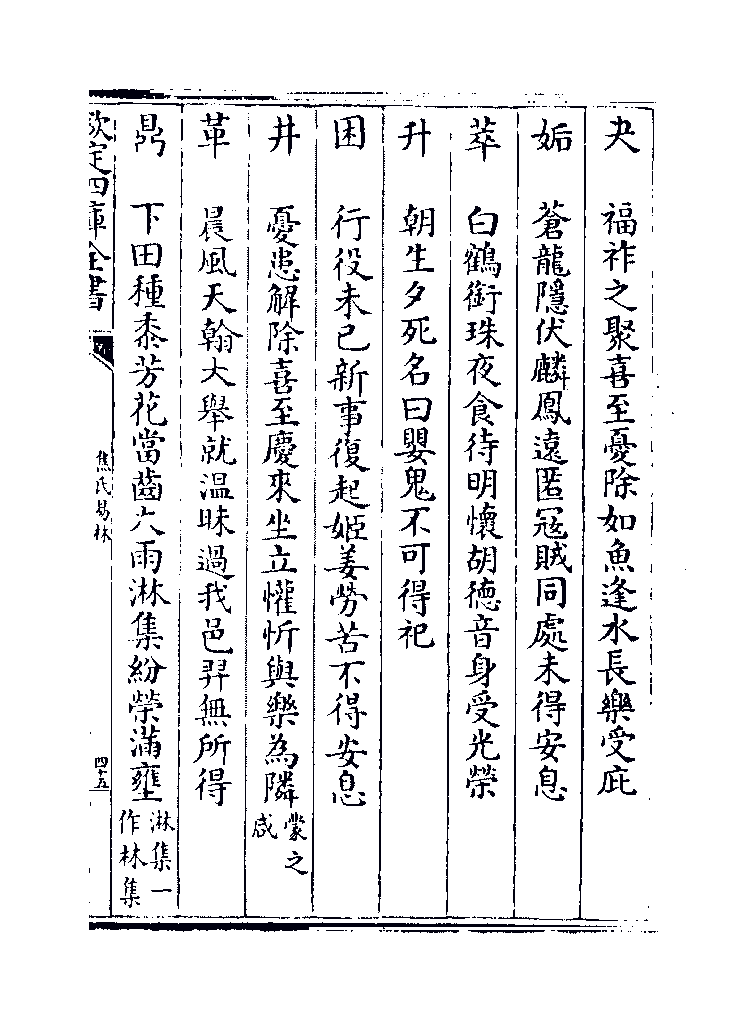 夬　福祚之聚喜至憂除如魚逢水長樂受庇
姤　蒼龍隱伏麟鳳遠匿冦賊同處未得安息
萃　白鶴銜珠夜食待明懷胡德音身受光榮
升　朝生夕死名曰嬰鬼不可得祀
困　行役未已新事復起姬姜勞苦不得安息
井　憂患解除喜至慶來坐立懽忻與樂為隣蒙之咸
革　晨風天翰大舉就溫昧過我邑羿無所得
鼎　下田種黍芳花當齒大雨淋集紛榮滿壅淋集一作林集
欽定四庫全書
焦氏易林
四十五